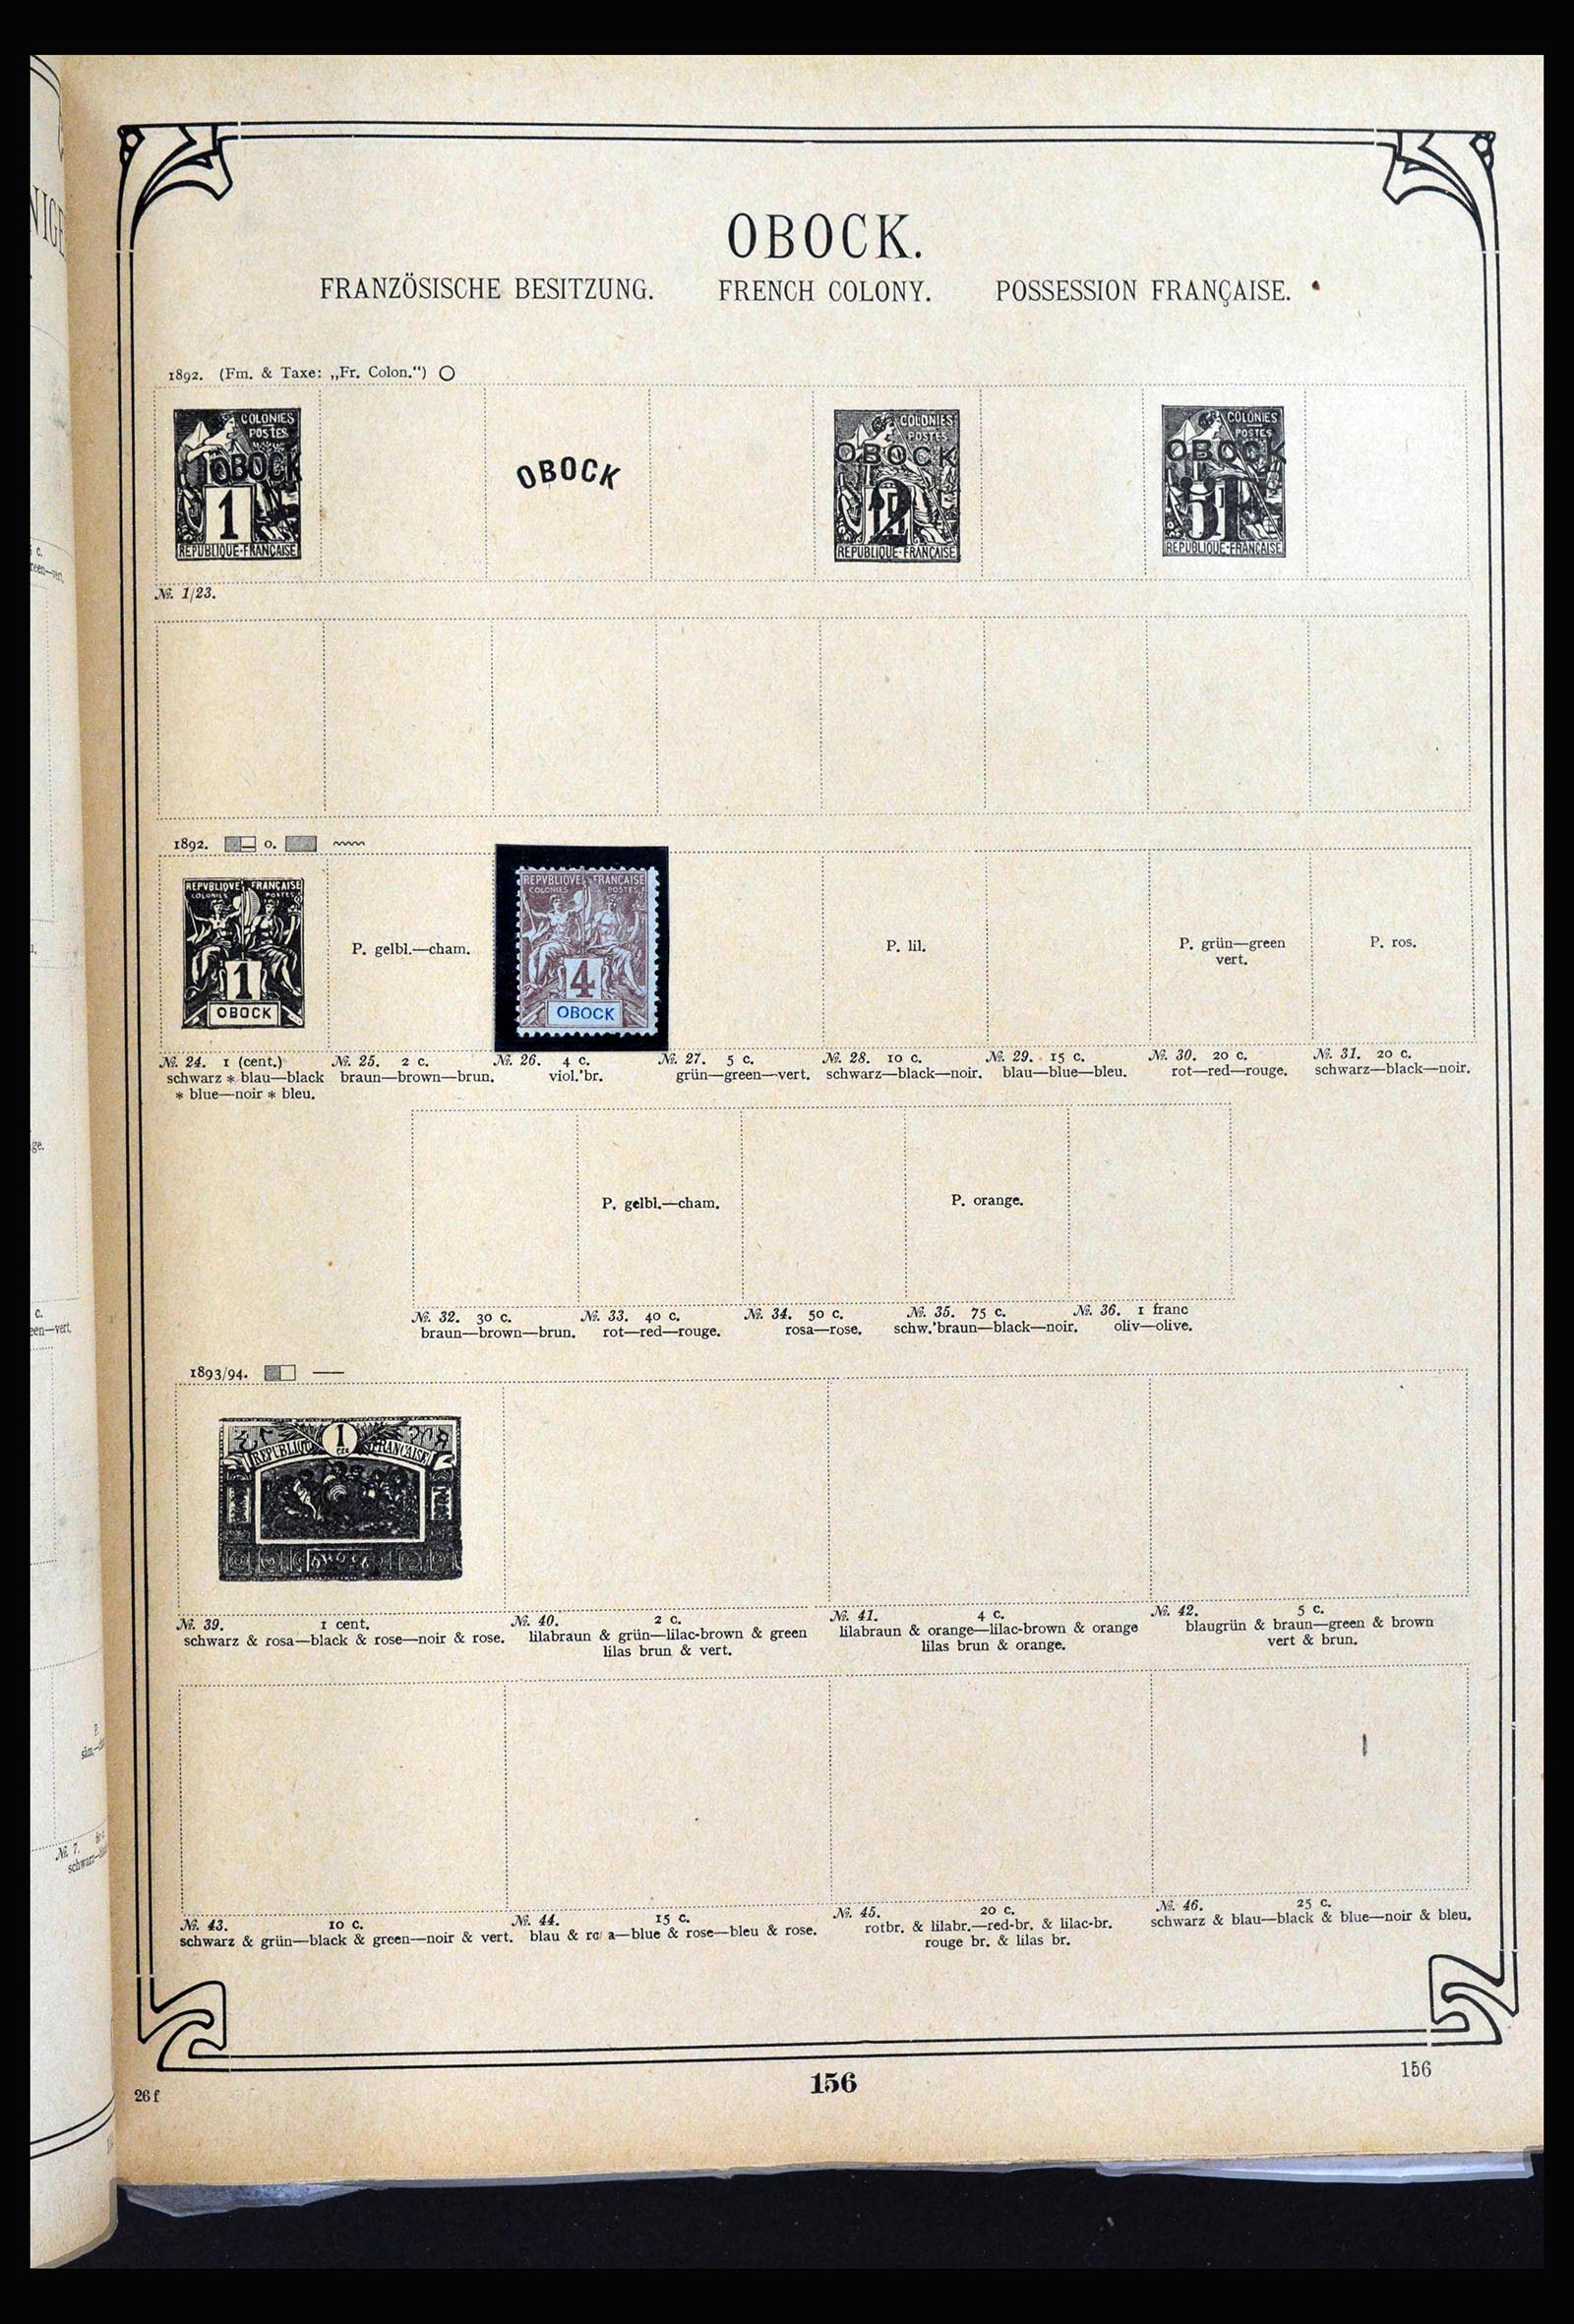 OBOCK.
FRANZÖSISCHE BESITZUNG. FRENCH COLONY. POSSESSION FRANÇAISE.
1892. (Fm. & Taxe: „Fr. Colon.“)
COLONIES
POSTES
OBOCK
1
REPUBLIQUE-FRANÇAISE
OBOCK
COLONIES
POSTES
OBOCK
REPUBLIQUE-FRANÇAISE
COLONIES
POSTES
OBOCK
REPUBLIQUE-FRANÇAISE
№. 1/23.
1892. o.
REPVBLIQVE FRANÇAISE
COLONIES POSTES
1
OBOCK
P. gelbl.—cham.
REPVBLIQVE FRANÇAISE
COLONIES POSTES
4
OBOCK
P. lil.
P. grün—green
vert.
P. ros.
№. 24. 1 (cent.)
schwarz * blau—black
* blue—noir * bleu.
№. 25. 2 c.
braun—brown—brun.
№. 26. 4 c.
viol.'br.
№. 27. 5 c.
grün—green—vert.
№. 28. 10 c.
schwarz—black—noir.
№. 29. 15 c.
blau—blue—bleu.
№. 30. 20 c.
rot—red—rouge.
№. 31. 20 c.
schwarz—black—noir.
P. gelbl.—cham.
P. orange.
№. 32. 30 c.
braun—brown—brun.
№. 33. 40 c.
rot—red—rouge.
№. 34. 50 c.
rosa—rose.
№. 35. 75 c.
schw.'braun—black—noir.
№. 36. 1 franc
oliv—olive.
1893/94.
1
REPUBLIQUE FRANÇAISE
OBOCK
№. 39. 1 cent.
schwarz & rosa—black & rose—noir & rose.
№. 40. 2 c.
lilabraun & grün—lilac-brown & green
lilas brun & vert.
№. 41. 4 c.
lilabraun & orange—lilac-brown & orange
lilas brun & orange.
№. 42. 5 c.
blaugrün & braun—green & brown
vert & brun.
№. 43. 10 c.
schwarz & grün—black & green—noir & vert.
№. 44. 15 c.
blau & ro a—blue & rose—bleu & rose.
№. 45. 20 c.
rotbr. & lilabr.—red-br. & lilac-br.
rouge br. & lilas br.
№. 46. 25 c.
schwarz & blau—black & blue—noir & bleu.
156
156
26 f